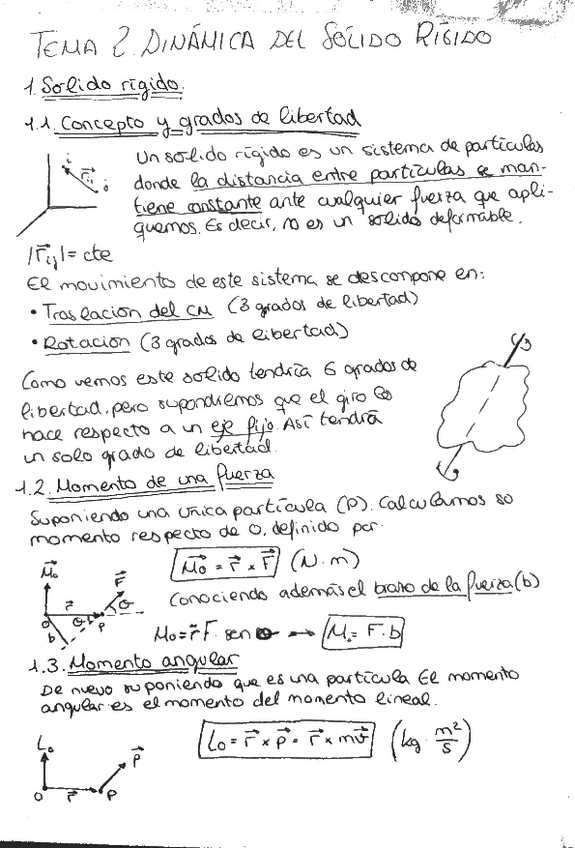 TEMA 2. DINÁMICA DEL SÓLIDO RÍGIDO
1. Solido rígido.
1.1. Concepto y grados de libertad
Un solido rígido es un sistema de partículas
donde la distancia entre partículas se man-
tiene constante ante cualquier fuerza que apli-
quemos. Es decir, no es un solido deformable.
i
r⃗ij
j
|r⃗ij| = cte
El movimiento de este sistema se descompone en:
• Traslación del CM (3 grados de libertad)
• Rotación (3 grados de libertad)
Como vemos este solido tendría 6 grados de
libertad, pero supondremos que el giro se
hace respecto a un eje fijo. Así tendrá
un solo grado de libertad.
1.2. Momento de una fuerza
Suponiendo una única partícula (P). Calculamos so
momento respecto de O, definido por:
M⃗o = r⃗ x F⃗ (N·m)
M⃗o
F⃗
r⃗
θ
O
θ
P
b
Conociendo además el brazo de la fuerza (b)
Mo = r⃗ F. sen θ → Mo = F·b
1.3. Momento angular
De nuevo suponiendo que es una partícula El momento
angular es el momento del momento lineal.
Lo = r⃗ x p⃗ = r⃗ x mv⃗ (kg · m²/s)
Lo
p⃗
O
r⃗
P